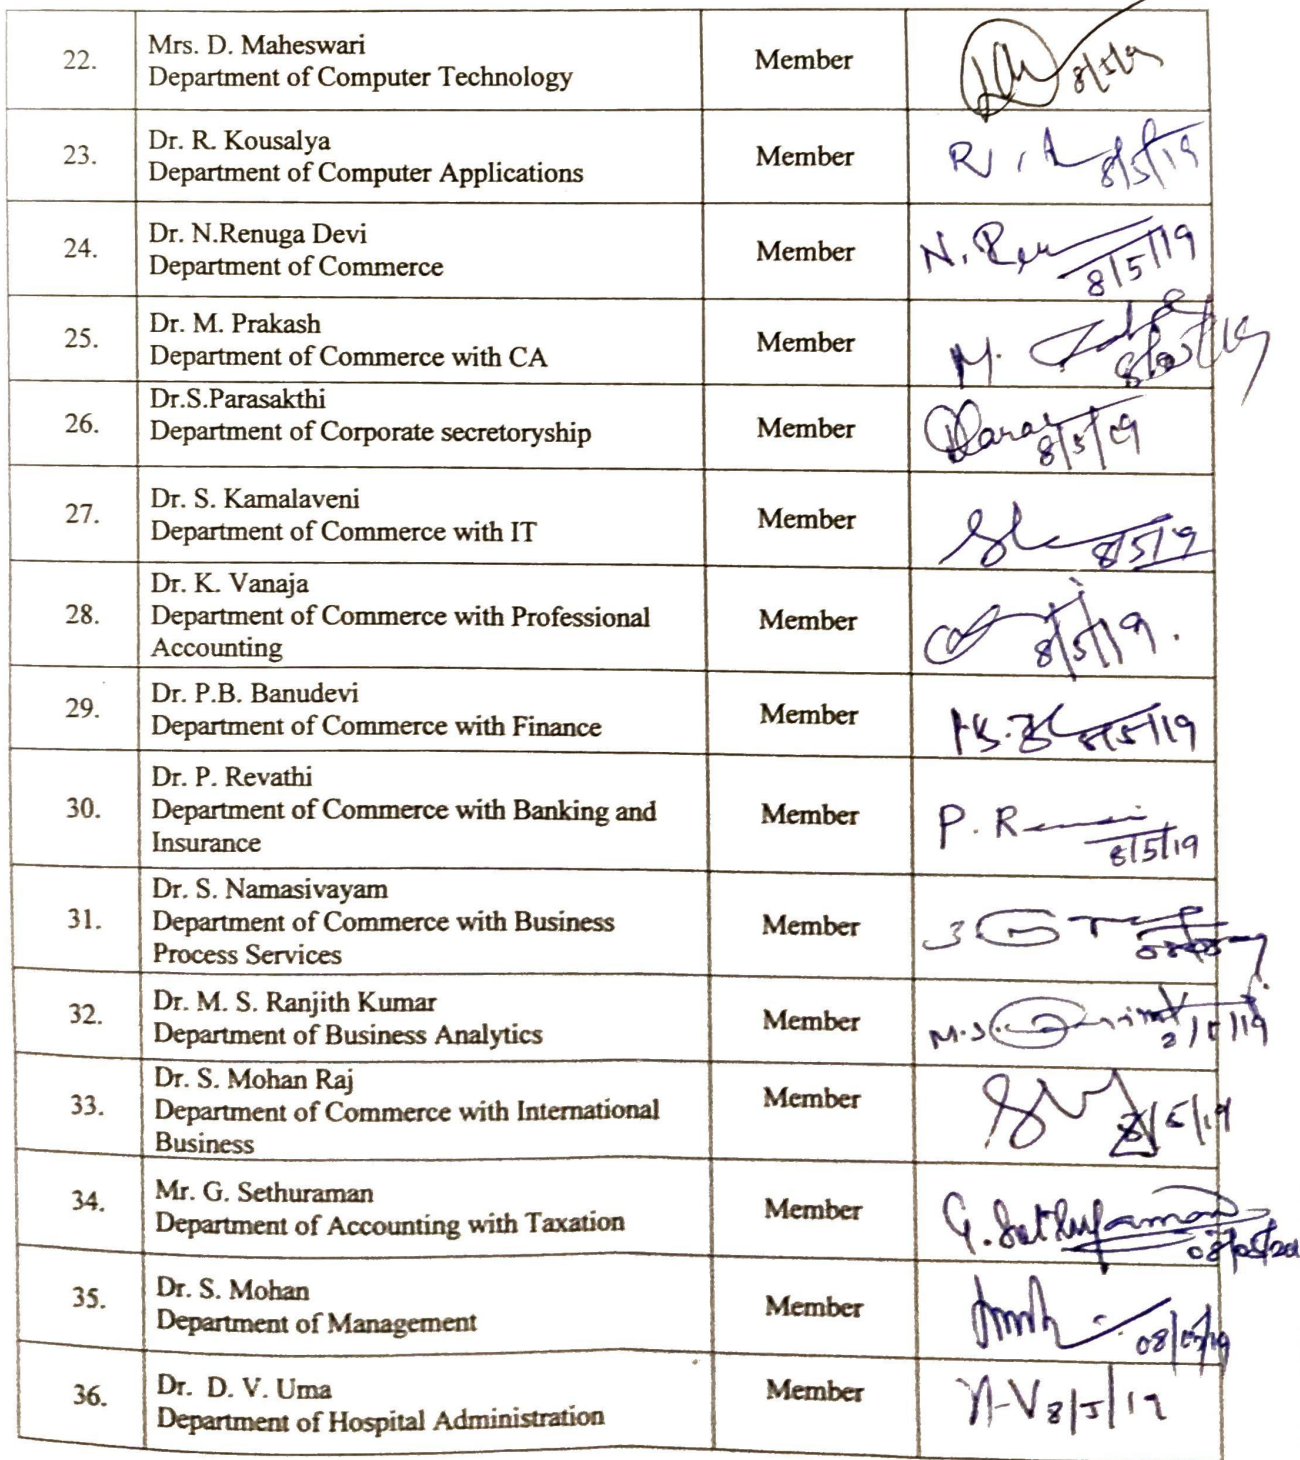 22.
Mrs. D. Maheswari
Department of Computer Technology
Member
8/5/19
23.
Dr. R. Kousalya
Department of Computer Applications
Member
8/5/19
24.
Dr. N.Renuga Devi
Department of Commerce
Member
N. Ren
8/5/19
25.
Dr. M. Prakash
Department of Commerce with CA
Member
M.
26.
Dr.S.Parasakthi
Department of Corporate secretoryship
Member
8/5/19
27.
Dr. S. Kamalaveni
Department of Commerce with IT
Member
8/5/19
28.
Dr. K. Vanaja
Department of Commerce with Professional
Accounting
Member
8/5/19.
29.
Dr. P.B. Banudevi
Department of Commerce with Finance
Member
8/5/19
30.
Dr. P. Revathi
Department of Commerce with Banking and
Insurance
Member
P. R
8/5/19
31.
Dr. S. Namasivayam
Department of Commerce with Business
Process Services
Member
32.
Dr. M. S. Ranjith Kumar
Department of Business Analytics
Member
M.S.
33.
Dr. S. Mohan Raj
Department of Commerce with International
Business
Member
8/5/19
34.
Mr. G. Sethuraman
Department of Accounting with Taxation
Member
G. Sethuraman
35.
Dr. S. Mohan
Department of Management
Member
08/05/19
36.
Dr. D. V. Uma
Department of Hospital Administration
Member
8/5/19